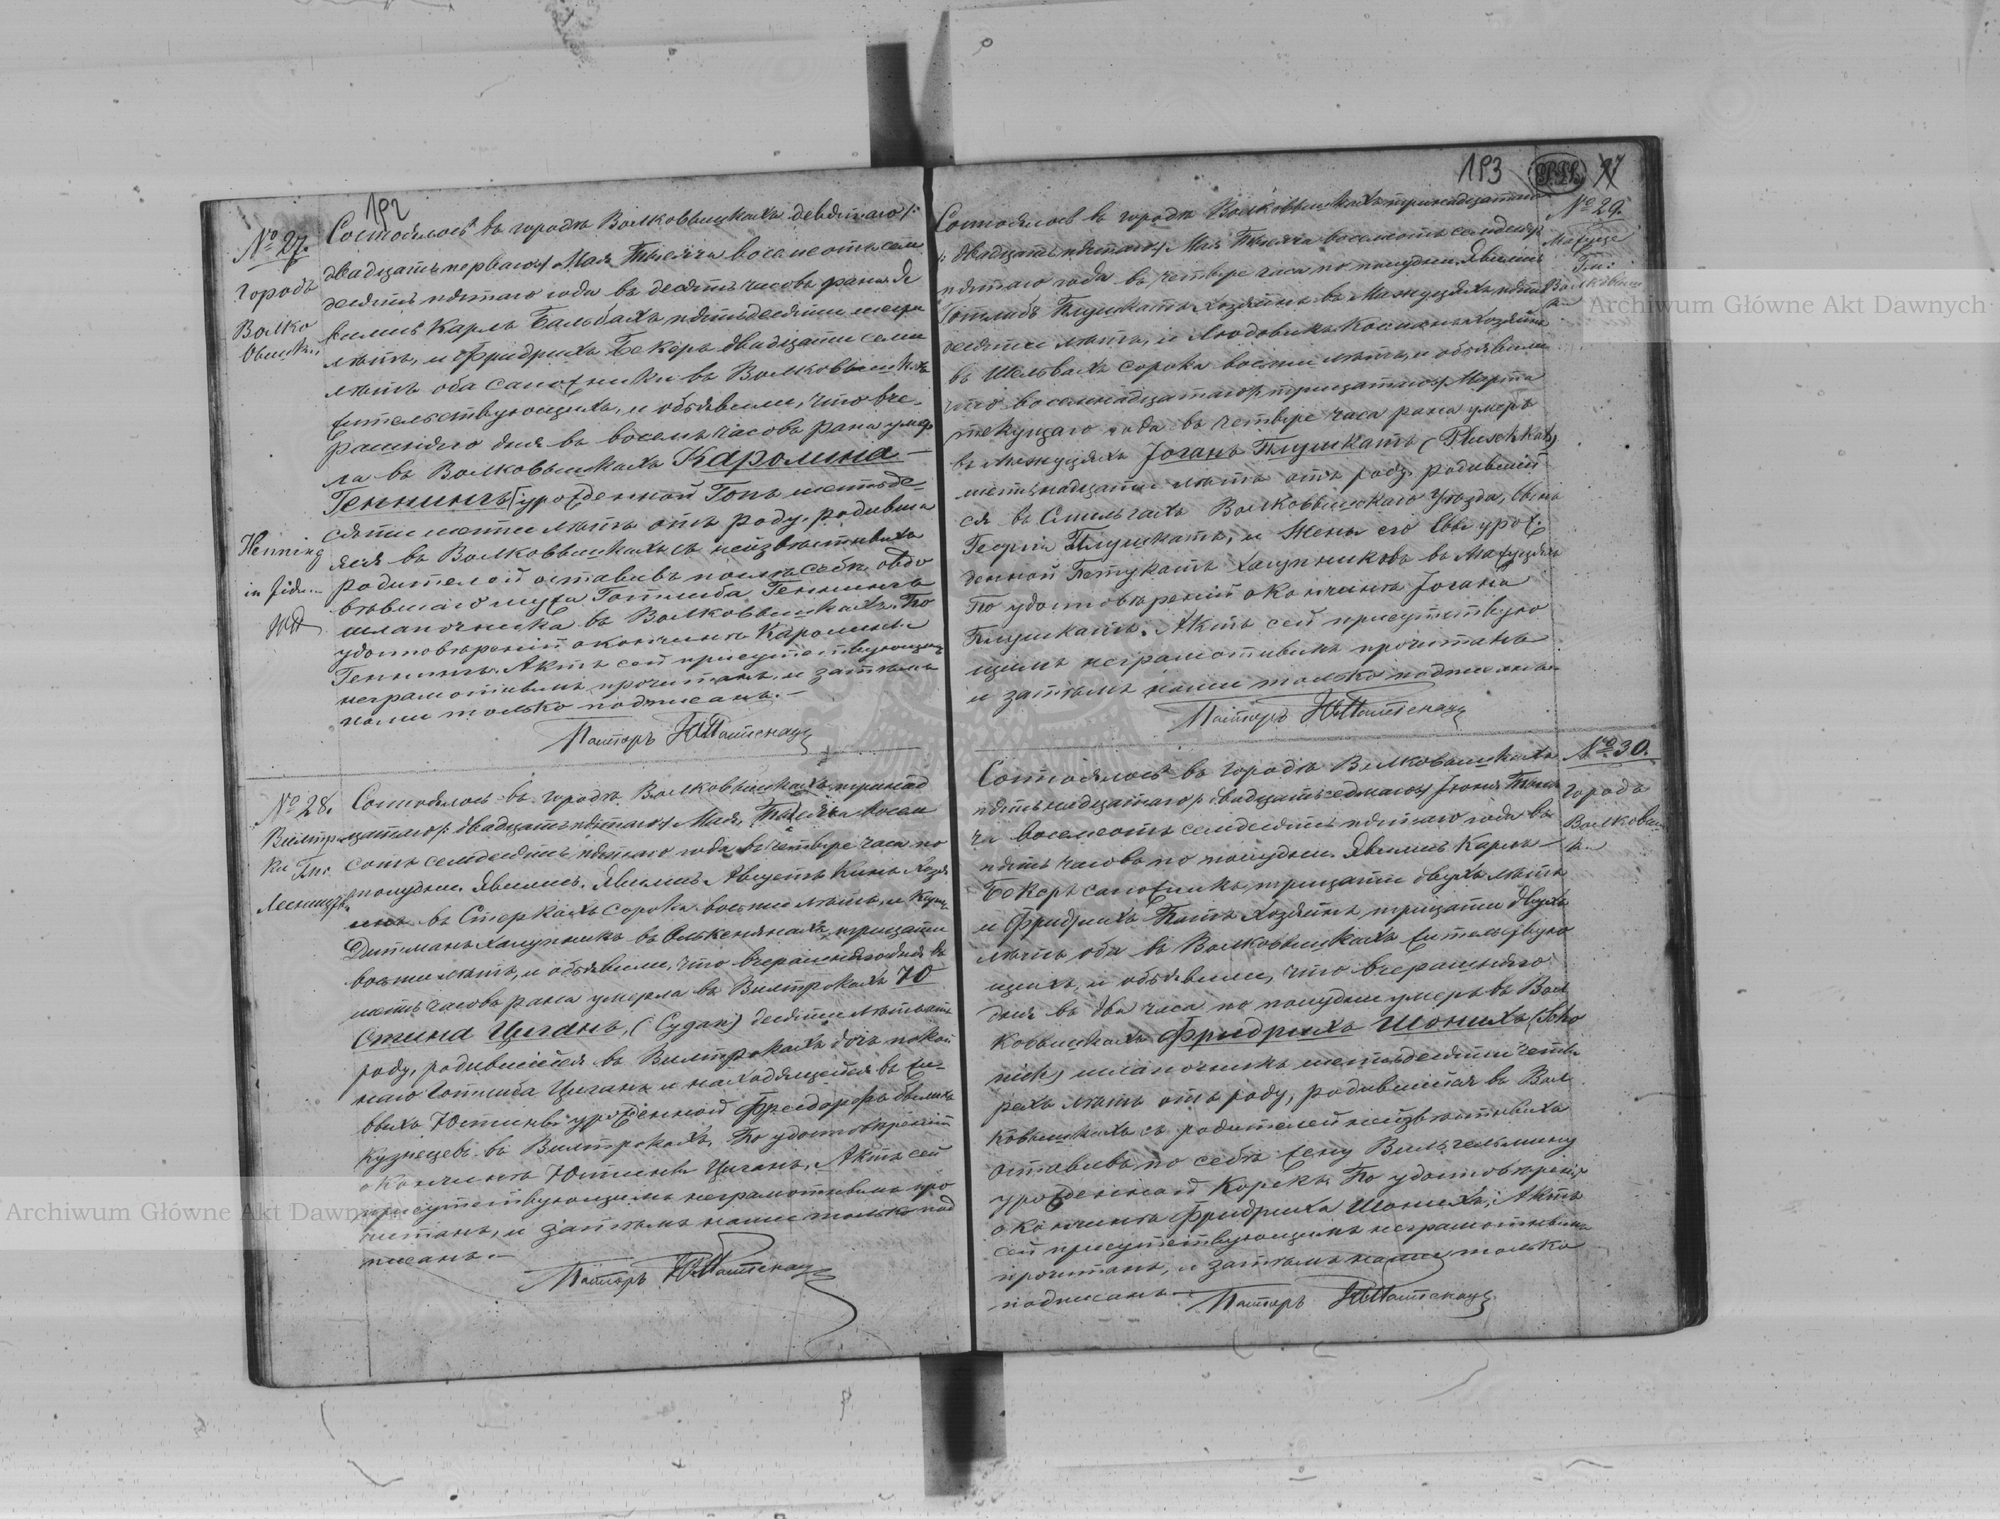 192
№ 27.
Городъ
Волко
вышки
Henning
Состоялось въ городѣ Волковышкахъ девятаго /:
двадцать перваго:/ Мая Тысяча восемсотъ семь
десять пятаго года въ десять часовъ рана. Я
вились Карлъ Бальбахъ пятьдесяти четы
лѣтъ, и Фридрихъ Бекеръ двадцати семи
лѣтъ оба сапожники въ Волковышкахъ
жительствующихъ, и объявили, что вче-
рашняго дня въ восемь часовъ рана умер
ла въ Волковышкахъ Каролина
Геннингъ урожденной Гопъ шестьде-
сяти шести лѣтъ отъ роду, родивша
яся въ Волковышкахъ съ неизвѣстныхъ
родителей оставивъ послѣ себя овдо
вѣвшаго мужа Готлиба Геннингъ
шапочника въ Волковышкахъ. По
удостовѣреніи о кончинѣ Каролины
Геннингъ. Актъ сей присутствующимъ
неграмотнымъ прочитанъ, и затѣмъ
нами только подписанъ.—
Пасторъ
№ 28.
Состоялось въ городѣ Волковышкахъ тринад
цатаго /: двадцать пятаго:/ Мая, Тысяча восем
сотъ семдесять пятаго года въ четыре часа по
полудни. Явились. Явились Августъ Кинъ Хозя
инъ въ Стеркахъ сорока восьми лѣтъ, и Карлъ
Дитманъ халупникъ въ Олькснянахъ тридцати
восьми лѣтъ, и объявили, что вчерашняго дня въ
шесть часовъ рана умерла въ Вилтрокахъ Ю
стина Циганъ, (Судап) десяти лѣтъ отъ
роду, родившейся въ Вилтрокахъ дочь покой
наго Готлиба Циганъ и находящейся въ жи-
выхъ Юстины урожденной Фрейдорфъ бывшихъ
Кузнецевъ въ Вилтрокахъ. По удостовѣреніи
о кончинѣ Юстины Циганъ, Актъ сей
присутствующимъ неграмотнымъ про
читанъ, и затѣмъ нами только под
писанъ.—
Пасторъ
193
№ 29.
Состоялось въ городѣ Волковышкахъ тринадцатаго
/: двадцать пятаго:/ Мая Тысяча восемсотъ семдесят
пятаго года въ четыре часа по полудни. Явились
Готлибъ Плушкатъ Хозяинъ въ Мажуцяхъ пять
десяти лѣтъ, и Людовикъ Косманъ Хозяинъ
въ Шельвахъ сорока восьми лѣтъ, и объявили
что восемнадцатаго /: тридцатаго:/ Марта
текущаго года въ четыре часа рана умеръ
въ Мажуцяхъ Іоганъ Плушкатъ (Pluschkat)
шестьнадцати лѣтъ отъ роду. родившій
ся въ Стильгахъ Волковышскаго Уѣзда, сынъ
Георгія Плушкатъ, и Жены его Евы урож
денной Петукатъ халупниковъ въ Мажуцяхъ
По удостовѣреніи о кончинѣ Іогана
Плушкатъ. Актъ сей присутствую
щимъ неграмотнымъ прочитанъ
и затѣмъ нами только подписанъ.
Пасторъ
№ 30.
Городъ
Волковыш
ки
Состоялось въ городѣ Волковышкахъ
пятьнадцатаго /: двадцать седмаго:/ Іюня Тыся
ча восемсотъ семдесять пятаго года въ
пять часовъ по полудни. Явились Карлъ
Бекеръ сапожникъ, тридцати двухъ лѣтъ
и Фридрихъ Патъ Хозяинъ тридцати двухъ
лѣтъ оба въ Волковышкахъ жительствую
щихъ, и объявили, что вчерашняго
дня въ два часа по полудни умеръ въ Вол
ковышкахъ Фридрихъ Шонихъ (Scho
nich) шапочникъ шестьдесяти четы
рехъ лѣтъ отъ роду, родившійся въ Вол
ковышкахъ съ родителей неизвѣстныхъ
оставивъ по себѣ жену Вильгельмину
урожденной Корекъ. По удостовѣреніи
о кончинѣ Фридриха Шонихъ, Актъ
сей присутствующимъ неграмотнымъ
прочитанъ, и затѣмъ нами только
подписанъ.—
Пасторъ
Archiwum Główne Akt Dawnych
Archiwum Główne Akt Dawnych